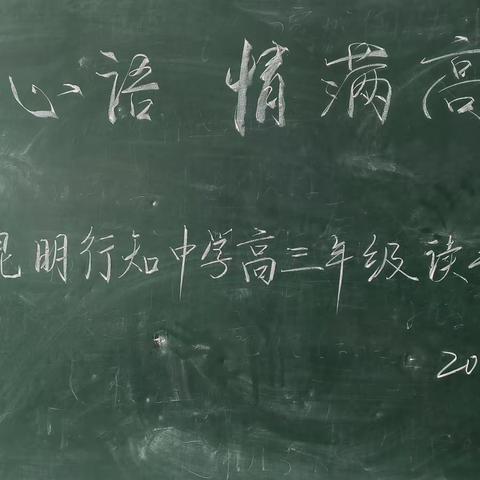 心语 情满高
昆明行知中学高三年级读
20